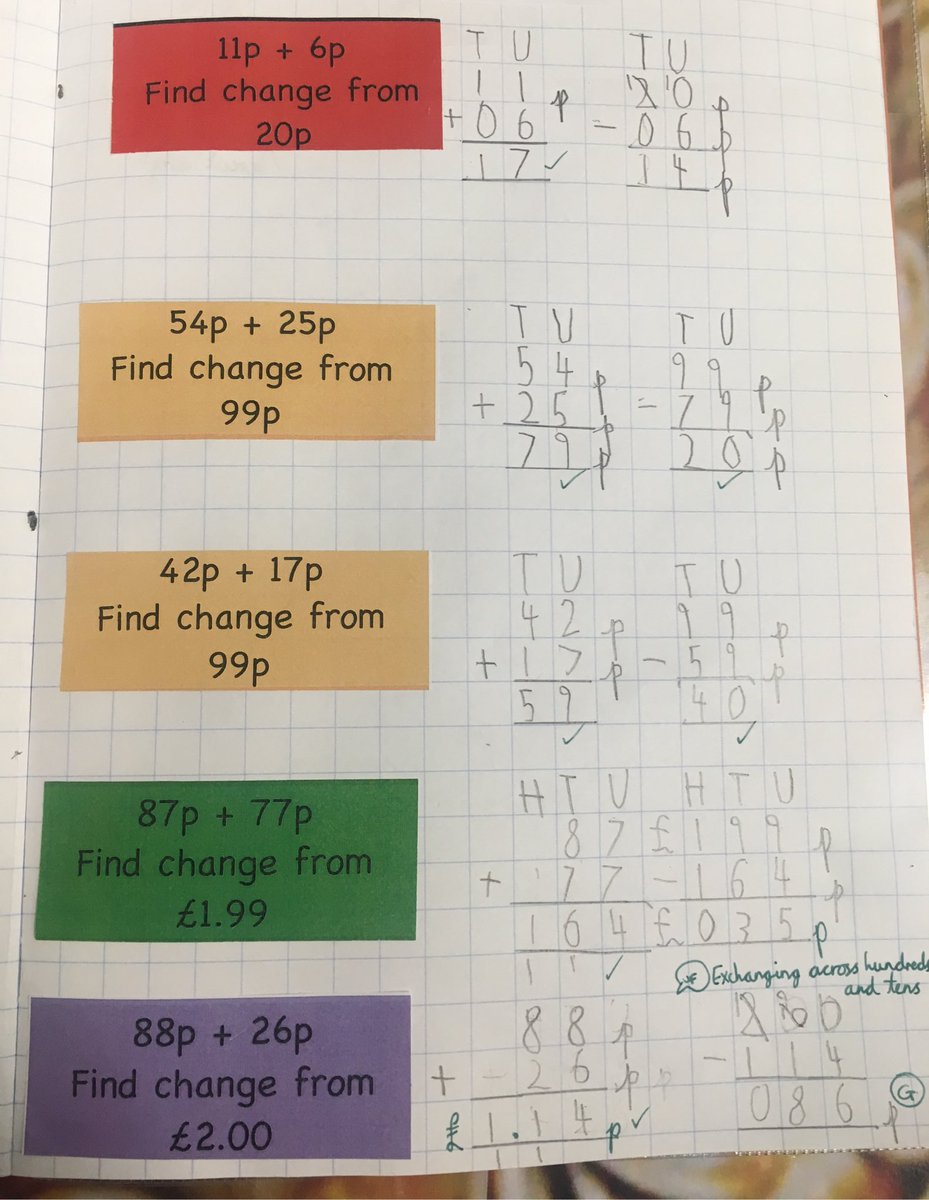 11p + 6p
Find change from
20p
T U
1 1 p
+ 0 6
1 7 ✓
T U
2 10 p
- 0 6 p
1 4 p
54p + 25p
Find change from
99p
T U
5 4 p
+ 2 5 p
7 9 p
✓
T U
9 9 p
- 7 9 p
2 0 p
✓
42p + 17p
Find change from
99p
T U
4 2 p
+ 1 7 p
5 9
✓
T U
9 9 p
- 5 9 p
4 0
✓
87p + 77p
Find change from
£1.99
H T U
8 7
+ 7 7
1 6 4
1 1 ✓
H T U
£ 1 9 9 p
- 1 6 4 p
£ 0 3 5 p
Exchanging across hundreds
and tens
88p + 26p
Find change from
£2.00
8 8 p
+ - 2 6 p
1 . 1 4 p ✓
1 1
0 0
- 1 1 4
0 8 6 p
G